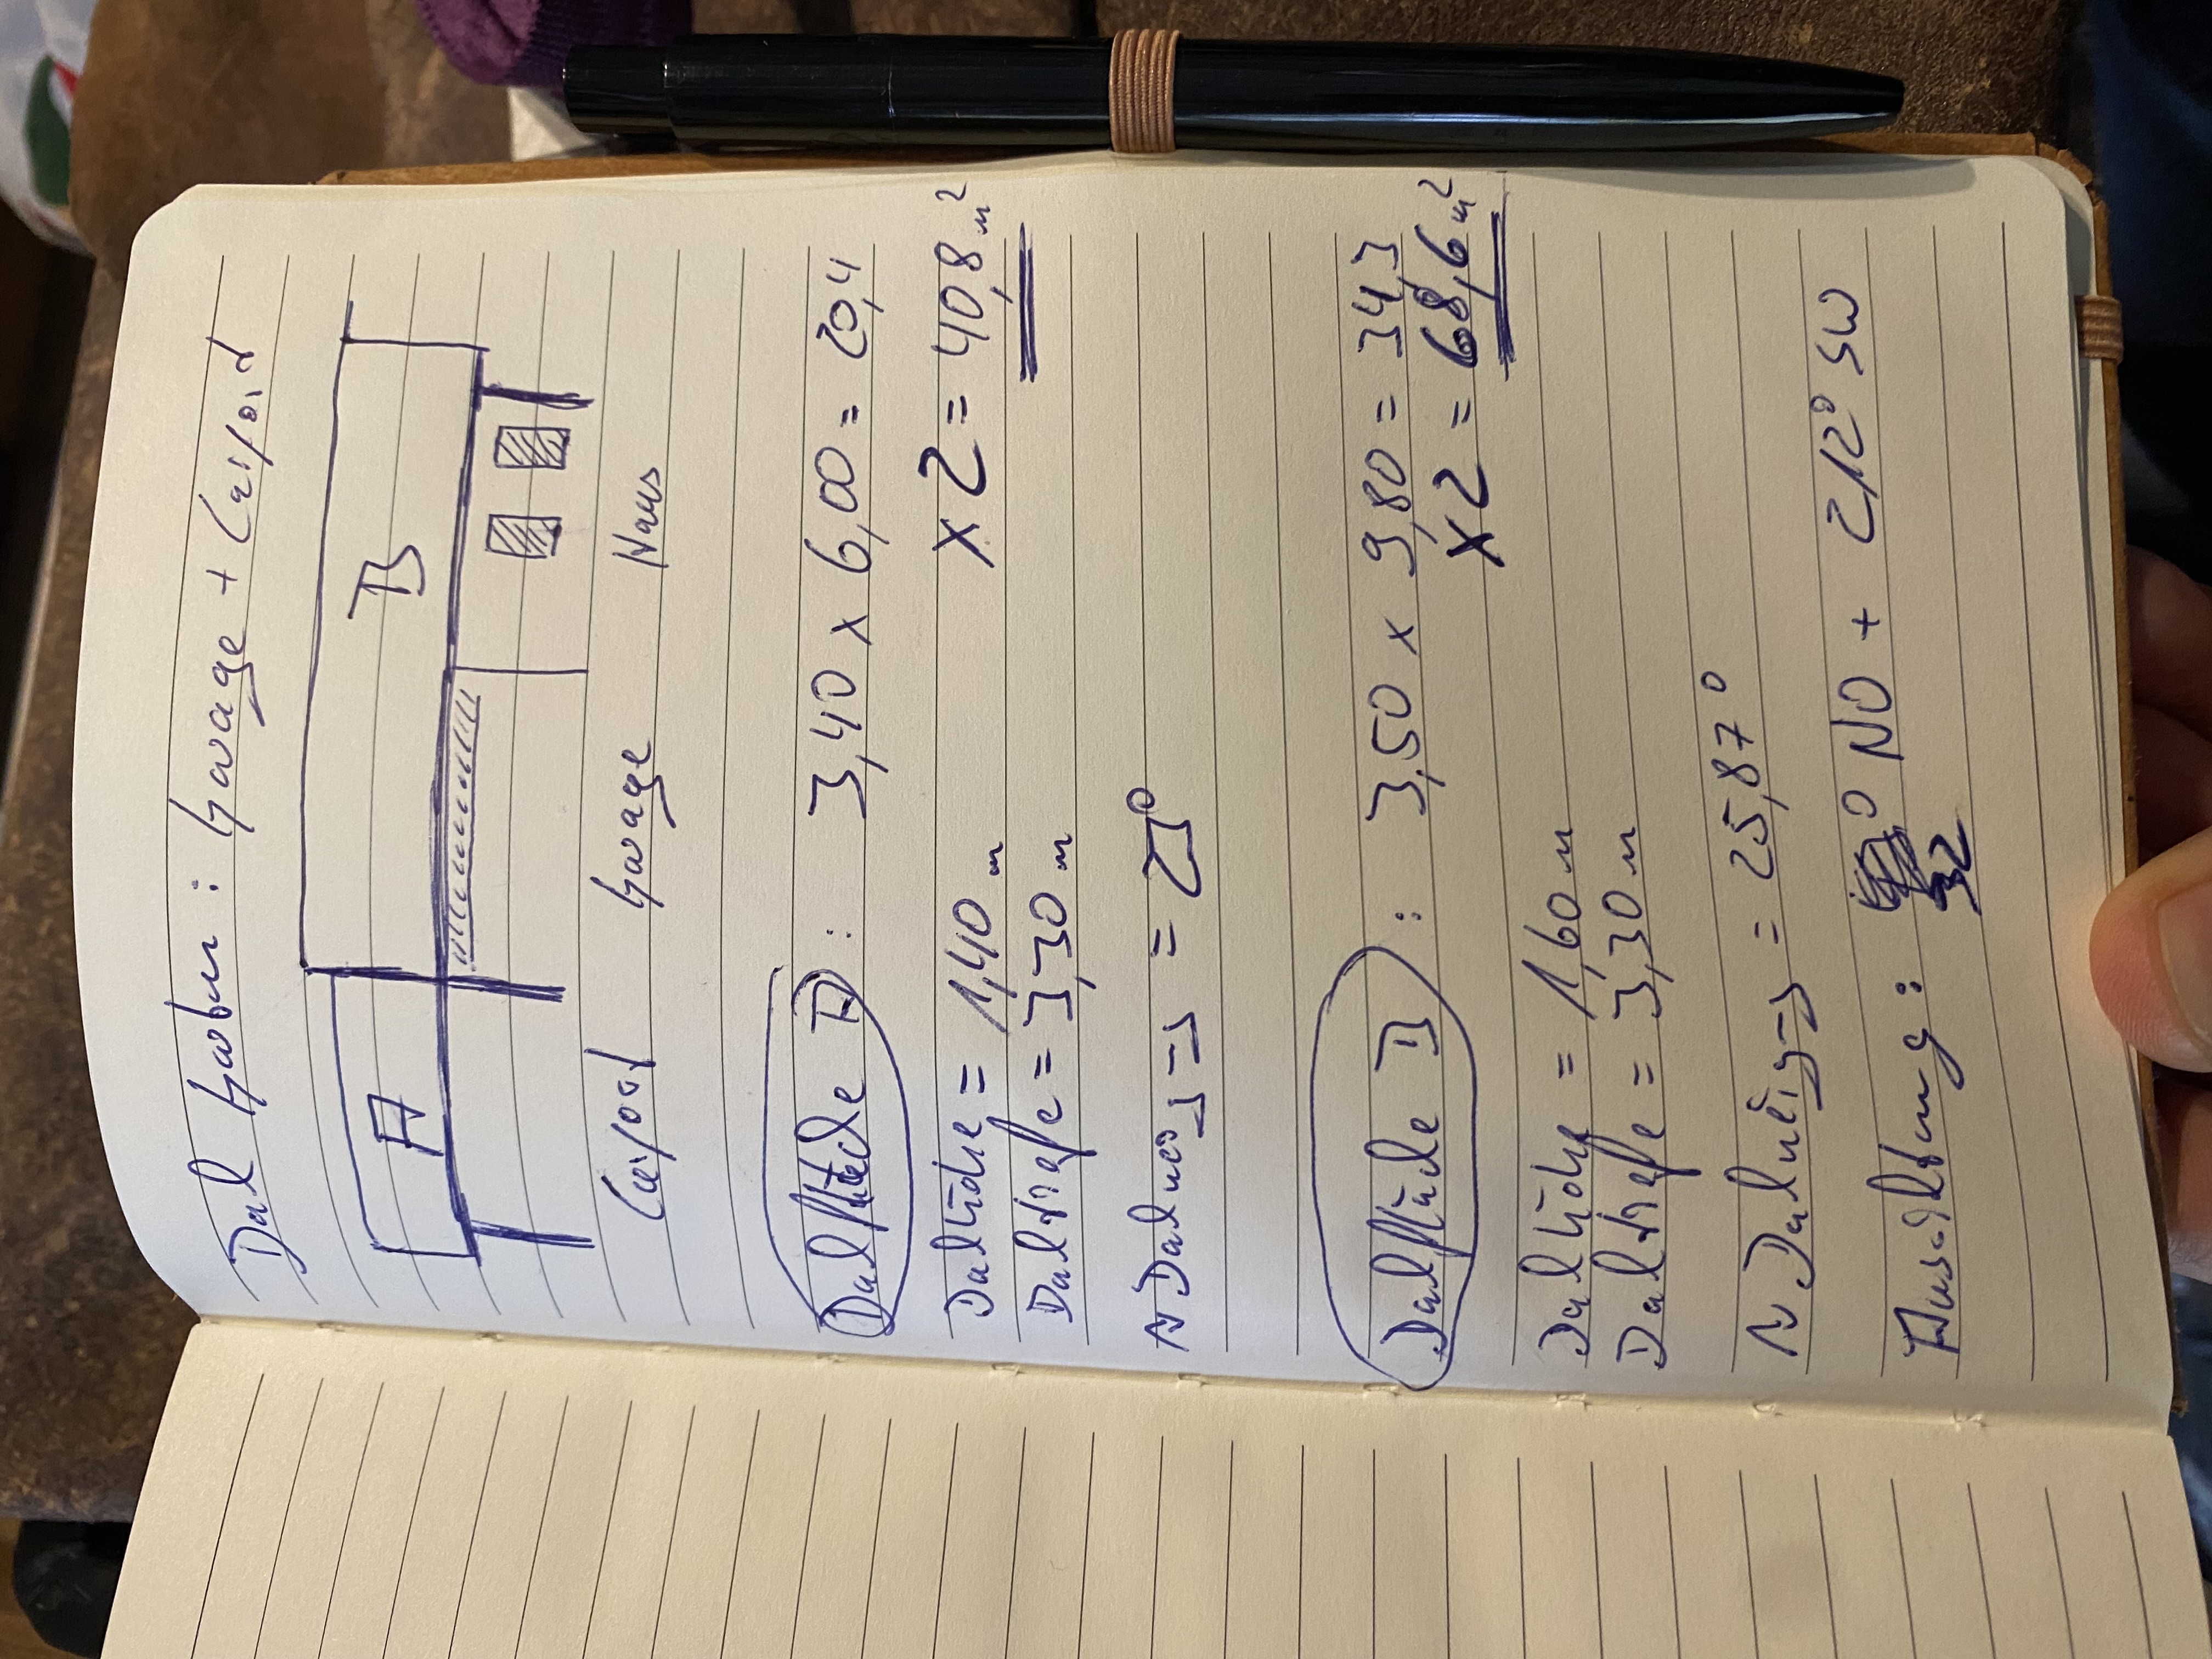 Dach hinten : Garage + Carport
A B
Carport Garage Haus
Dachfläche A : 3,40 x 6,00 = 20,4
Dachhöhe = 1,40 m x 2 = 40,8 m²
Dachtiefe = 3,30 m
Dachneigung = 23°
Dachfläche B : 3,50 x 9,80 = 34,3
x 2 = 68,6 m²
Dachhöhe = 1,60 m
Dachtiefe = 3,30 m
Dachneigung = 25,87°
Ausrichtung : 32° NO + 212° SW